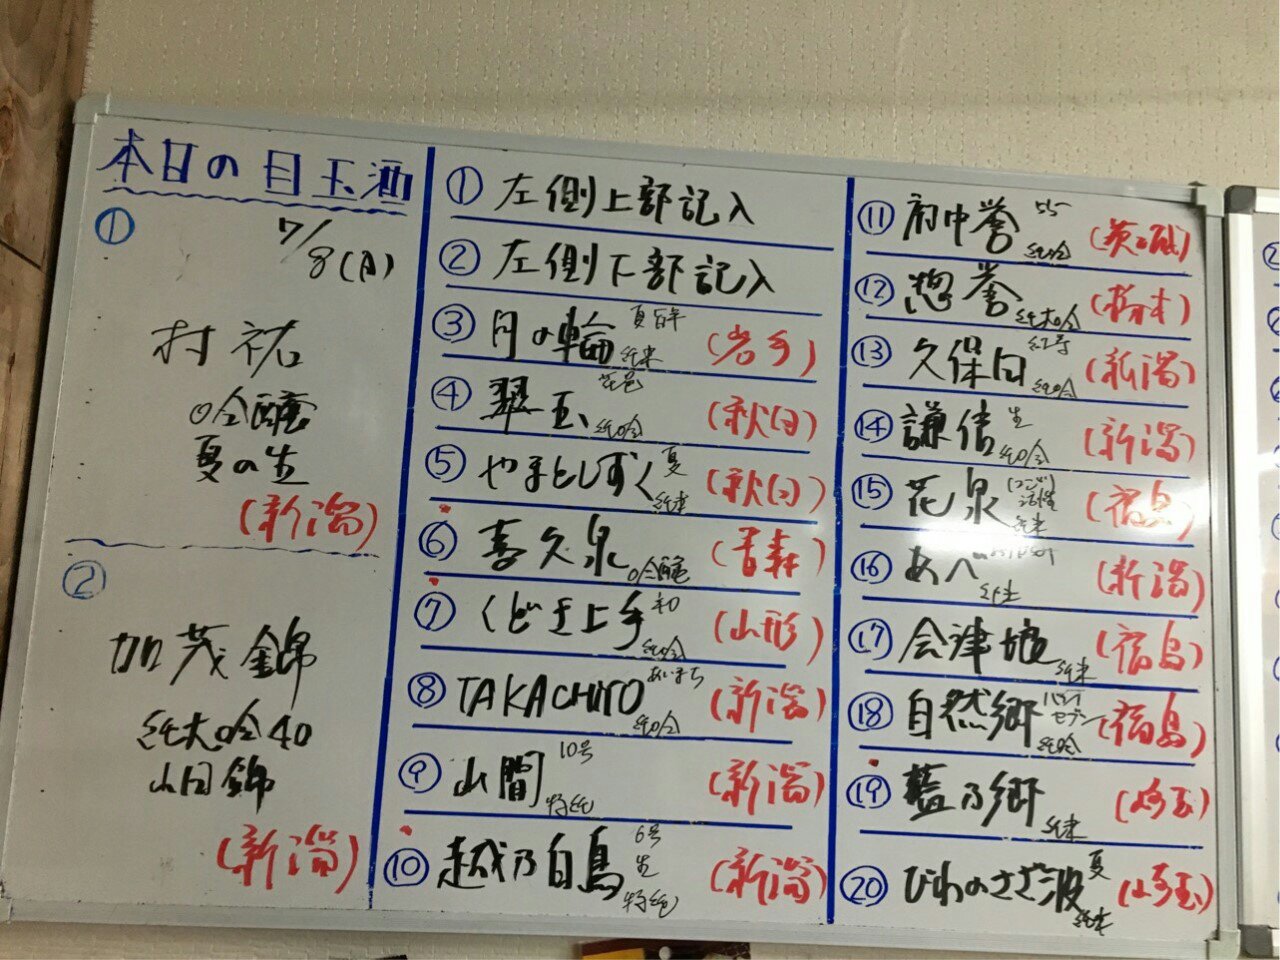 本日の目玉酒
①
7/8(月)
村祐
吟醸
夏の生
(新潟)
②
加茂錦
純大吟40
山田錦
(新潟)
① 左側上部記入
② 左側下部記入
③ 月の輪 純米 (岩手)
④ 翠玉 純吟 (秋田)
⑤ やまとしずく 夏 純米 (秋田)
⑥ 喜久泉 吟醸 (青森)
⑦ くどき上手 純吟 (山形)
⑧ TAKACHIYO 純吟 (新潟)
⑨ 山間 10号 特純 (新潟)
⑩ 越乃白鳥 6号 生 特純 (新潟)
⑪ 府中誉 55 純吟 (茨城)
⑫ 惣誉 純大吟 (栃木)
⑬ 久保田 純吟 (新潟)
⑭ 謙信 生 純吟 (新潟)
⑮ 花泉 活性 純米 (福島)
⑯ あべ 純米 (新潟)
⑰ 会津娘 純米 (福島)
⑱ 自然郷 セブン 純吟 (福島)
⑲ 藍乃郷 純米 (埼玉)
⑳ びわのさざ波 夏 純米 (埼玉)